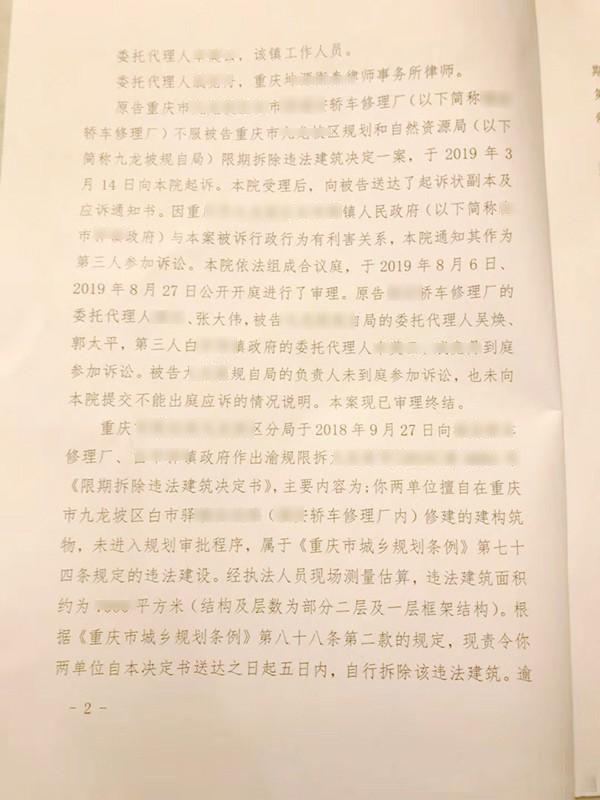 委托代理人，该镇工作人员。
委托代理人，重庆律师事务所律师。
原告重庆市轿车修理厂（以下简称
轿车修理厂）不服被告重庆市九龙坡区规划和自然资源局（以下
简称九龙坡规自局）限期拆除违法建筑决定一案，于 2019 年 3
月 14 日向本院起诉。本院受理后，向被告送达了起诉状副本及
应诉通知书。因重镇人民政府（以下简称
市政府）与本案被诉行政行为有利害关系，本院通知其作为
第三人参加诉讼。本院依法组成合议庭，于 2019 年 8 月 6 日、
2019 年 8 月 27 日公开开庭进行了审理。原告轿车修理厂的
委托代理人、张大伟，被告局的委托代理人吴焕、
郭太平，第三人白镇政府的委托代理人到庭
参加诉讼。被告规自局的负责人未到庭参加诉讼，也未向
本院提交不能出庭应诉的情况说明。本案现已审理终结。
重庆区分局于 2018 年 9 月 27 日向
修理厂、镇政府作出渝规限拆
《限期拆除违法建筑决定书》，主要内容为；你两单位擅自在重庆
市九龙坡区白市驿（轿车修理厂内）修建的建构筑
物，未进入规划审批程序，属于《重庆市城乡规划条例》第七十
四条规定的违法建设。经执法人员现场测量估算，违法建筑面积
约为平方米（结构及层数为部分二层及一层框架结构）。根
据《重庆市城乡规划条例》第八十八条第二款的规定，现责令你
两单位自本决定书送达之日起五日内，自行拆除该违法建筑。逾
- 2 -